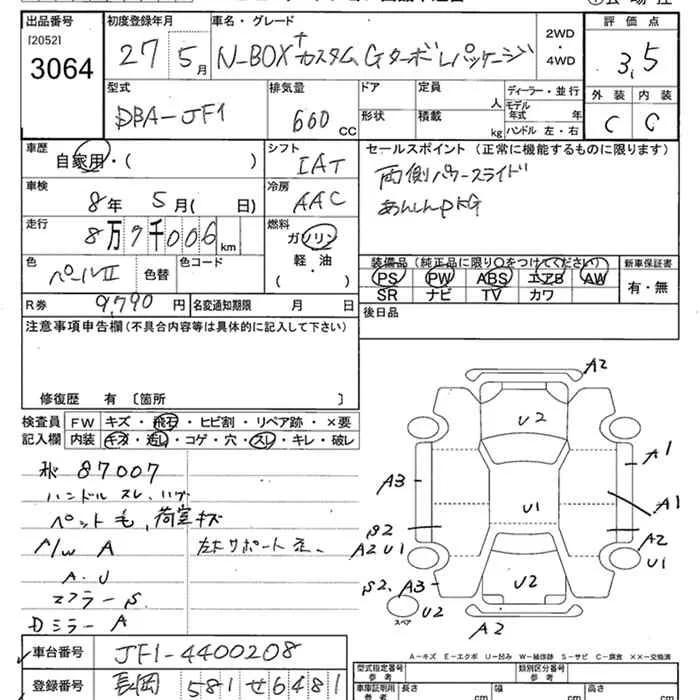 出品番号 初度登録年月 車名・グレード 2WD・4WD 評価点
[2052] 3064 27 5月 N-BOX+カスタム GターボLパッケージ 3,5
型式 排気量 ドア 定員 人 ディーラー・並行 外装 内装
DBA-JF1 660 CC 形状 積載 kg モデル年式 年 ハンドル 左・右 C C
車歴 シフト セールスポイント (正常に機能するものに限ります)
自家用・( ) IAT 両側パワースライド
車検 冷房 あんしんPKG
8年 5月( 日) AAC
走行 燃料
8万7千006km ガソリン
色 色替 色コード 軽・油 装備品(純正品に限り○をつけてください) 新車保証書
パールII ( ) PS PW ABS エアB AW 有・無
SR ナビ TV カワ
R券 9,790円 名変通知期限 月 日 後日品
注意事項申告欄(不具合内容等は具体的に記入して下さい)
修復歴 有〔箇所 〕
検査員 FW キズ・飛石・ヒビ割・リペア跡・×要
記入欄 内装 キズ・汚レ・コゲ・穴・スレ・キレ・破レ
87007
ハンドル スレ、ハゲ
ペット毛、荷室キズ
A/W A 左右サポート
A.U
マフラー S
Dミラー A
A2
U2
A1
A3 U1 A1
S2 A2
A2 U1 U1
S2. A3 U2
スペア U2
A2
A…キズ E…エクボ U…凹み W…補修跡 S…サビ C…腐食 ××…交換済
車台番号 JF1-4400208 型式指定番号 参考 類別区分番号 参考
登録番号 長岡 581 せ6481 車庫証明用 参考 長さ cm 幅 cm 高さ cm